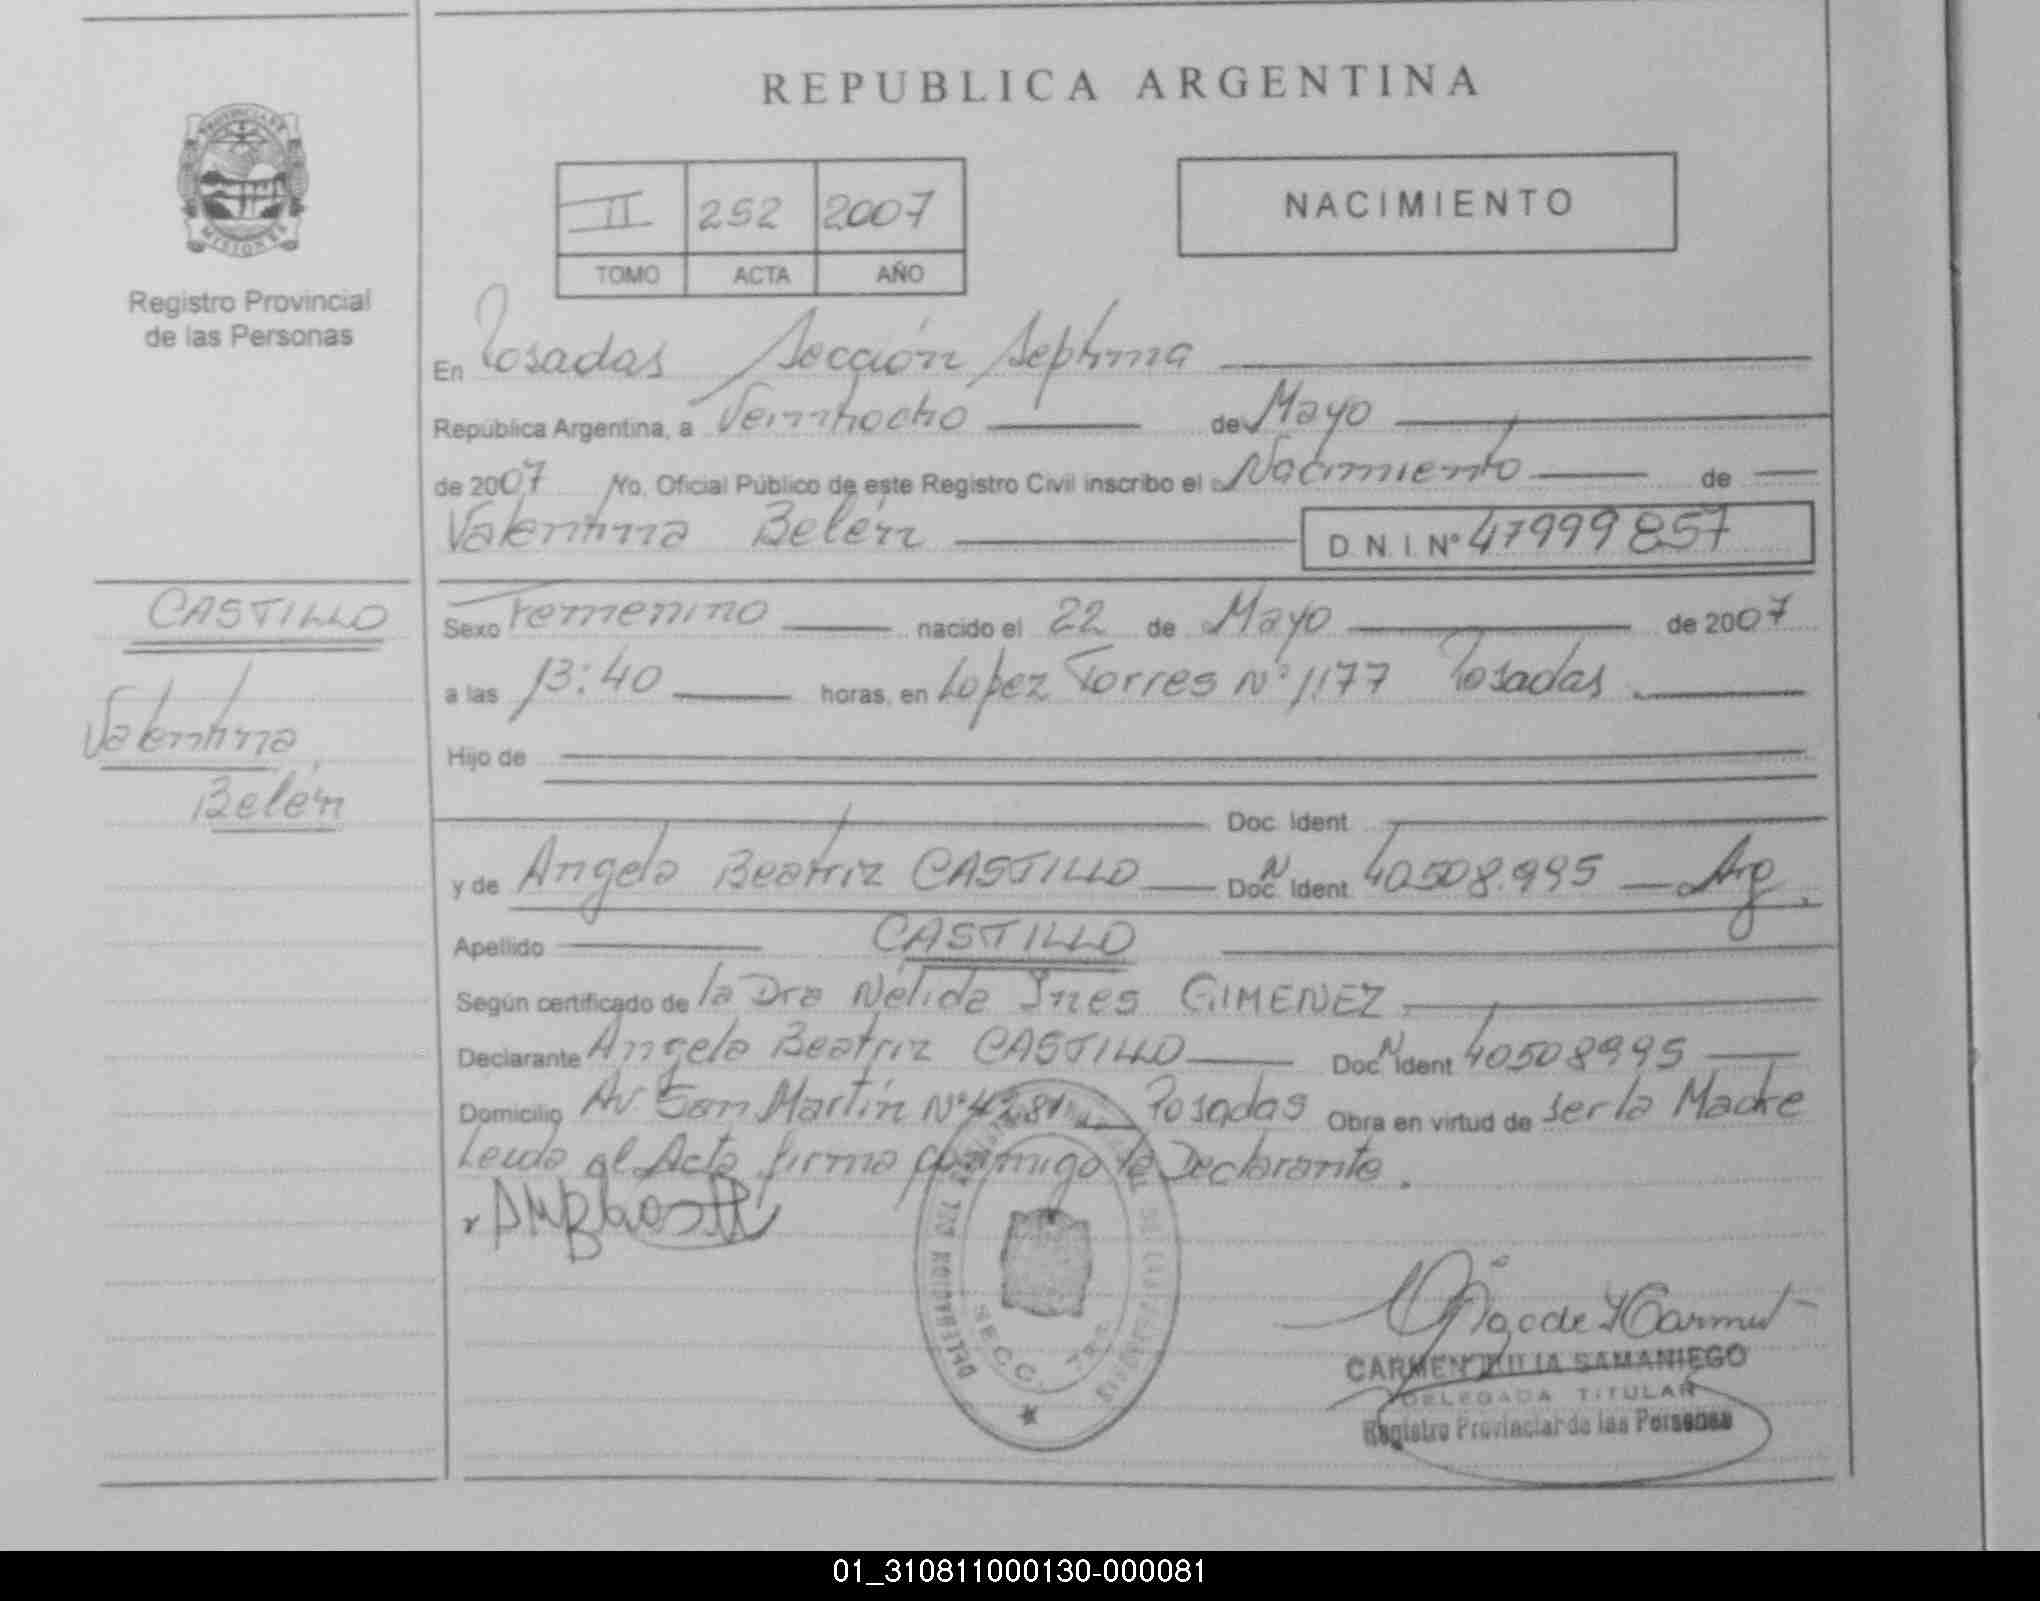 REPUBLICA ARGENTINA
PROVINCIA DE
MISIONES
Registro Provincial
de las Personas
II 252 2007
TOMO ACTA AÑO
NACIMIENTO
En Posadas Sección Septima
República Argentina, a Veintiocho de Mayo
de 2007 Yo. Oficial Público de este Registro Civil inscribo el Nacimiento de
Valentina Belén D.N.I. Nº 47999857
CASTILLO
Valentina
Belén
Sexo Femenino nacido el 22 de Mayo de 2007
a las 13:40 horas, en Lopez Torres Nº 1177 Posadas
Hijo de
Doc. Ident.
y de Angela Beatriz CASTILLO Doc. N Ident. 40508.995 Arg.
Apellido CASTILLO
Según certificado de la Dra Nélida Ines GIMENEZ
Declarante Angela Beatriz CASTILLO Doc. N Ident 40508995
Domicilio Av. San Martín Nº Posadas Obra en virtud de ser la Madre
Leida el Acta firma conmigo la Declarante.
SECC. 7ma
CARMEN JULIA SAMANIEGO
DELEGADA TITULAR
Registro Provincial de las Personas
01_310811000130-000081